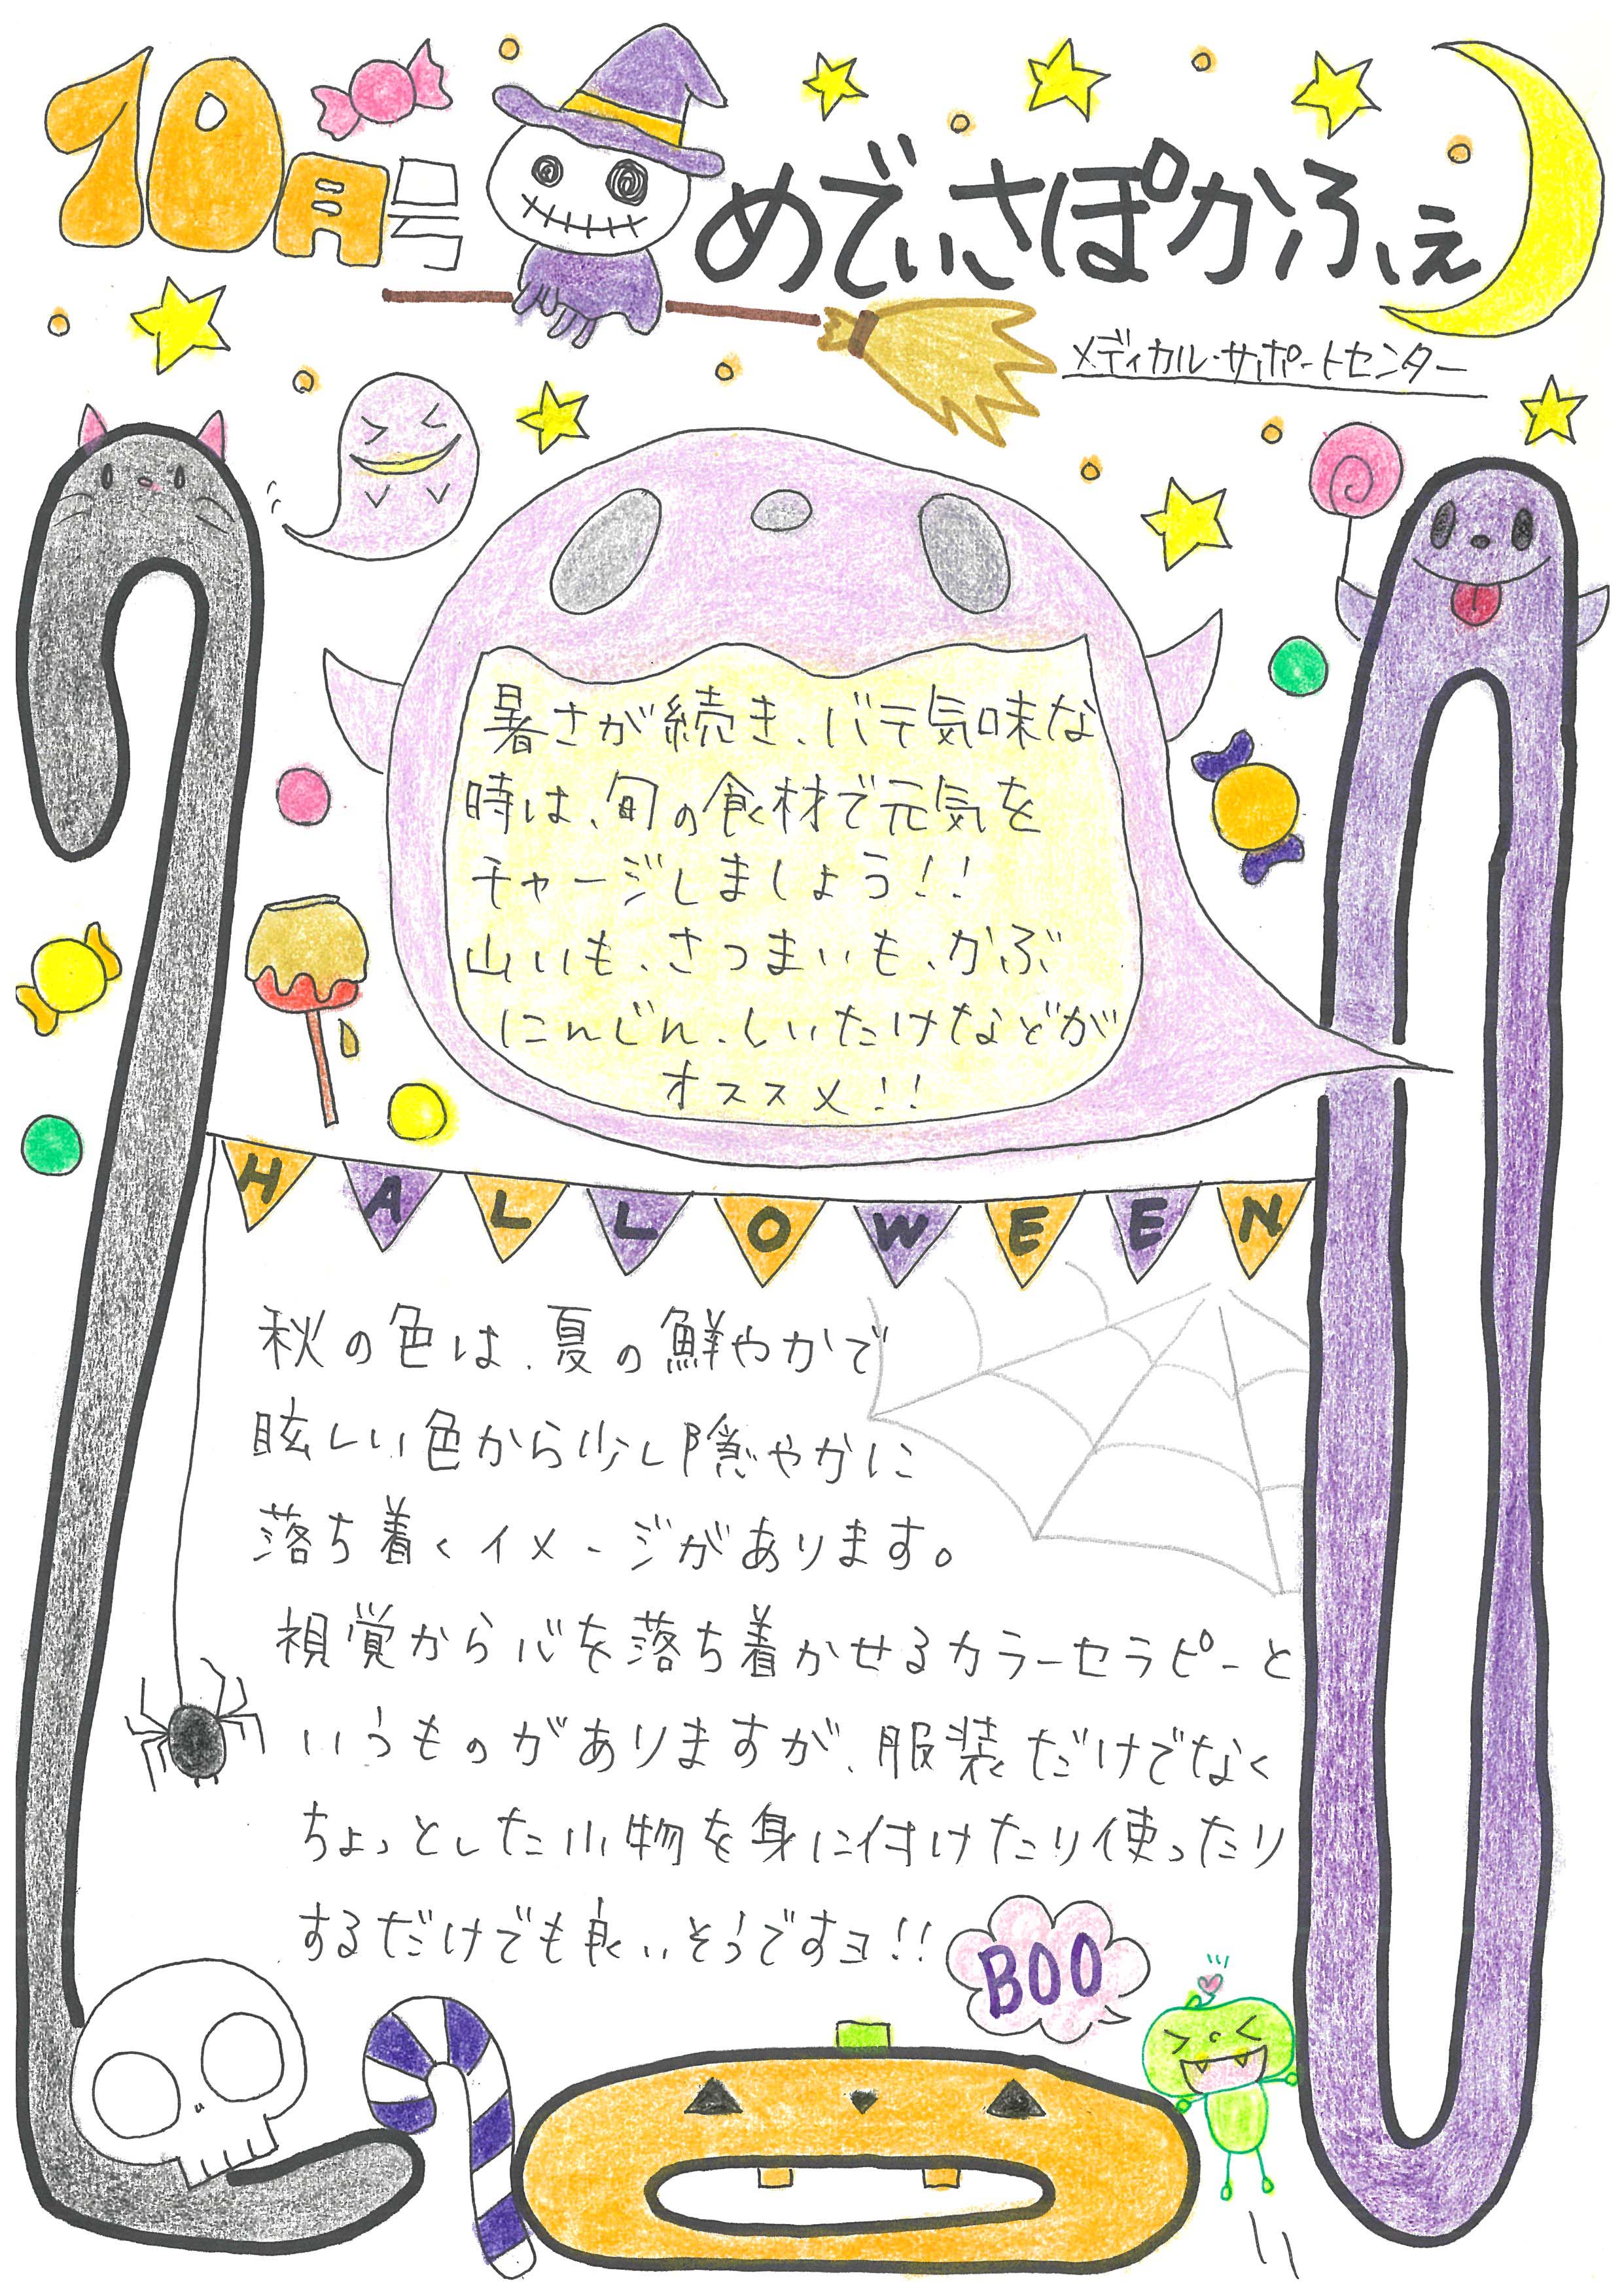 10月号
めでぃさぽかふぇ
メディカル・サポートセンター
暑さが続き、バテ気味な
時は、旬の食材で元気を
チャージしましょう!!
山いも、さつまいも、かぶ
にんじん、しいたけなどが
オススメ!!
HALLOWEEN
秋の色は、夏の鮮やかで
眩しい色から少し隠やかに
落ち着くイメージがあります。
視覚から心を落ち着かせるカラーセラピーと
いうものがありますが、服装だけでなく
ちょっとした小物を身に付けたり使ったり
するだけでも良いそうですヨ!!
BOO